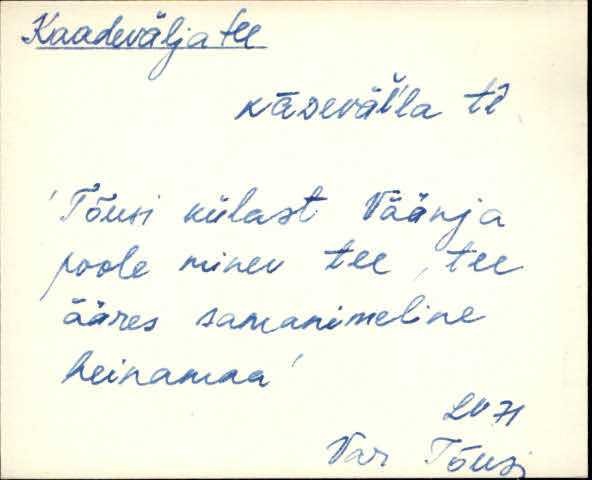 Kaadeväljatee
kāᴅeväl̆'la tî
'Tõusi külast Väänja
poole minev tee, tee
ääres samanimeline
heinamaa'
LV 71
Var Tõusi